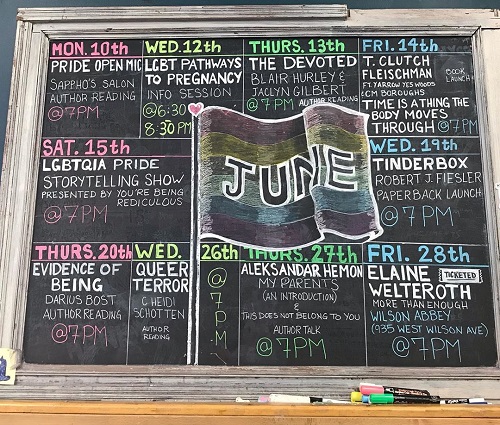 MON. 10th
PRIDE OPEN MIC
SAPPHO'S SALON
AUTHOR READING
@7PM
WED. 12th
LGBT PATHWAYS
TO PREGNANCY
INFO SESSION
@6:30
8:30 PM
THURS. 13th
THE DEVOTED
BLAIR HURLEY &
JACLYN GILBERT
@7PM AUTHOR READING
FRI. 14th
T. CLUTCH
FLEISCHMAN
FT. YARROW YES WOODS
& CM BURROUGHS
BOOK
LAUNCH
TIME IS A THING THE
BODY MOVES
THROUGH @7PM
SAT. 15th
LGBTQIA PRIDE
STORYTELLING SHOW
PRESENTED BY YOU'RE BEING
REDICULOUS
@7PM
JUNE
WED. 19th
TINDERBOX
ROBERT J. FIESLER
PAPERBACK LAUNCH
@7PM
THURS. 20th
EVIDENCE OF
BEING
DARIUS BOST
AUTHOR READING
@7PM
WED. 26th
QUEER
TERROR
C HEIDI
SCHOTTEN
AUTHOR
READING
@
7
P
M
THURS. 27th
ALEKSANDAR HEMON
MY PARENTS
(AN INTRODUCTION)
&
THIS DOES NOT BELONG TO YOU
AUTHOR TALK
@7PM
FRI. 28th
ELAINE TICKETED
WELTEROTH
MORE THAN ENOUGH
WILSON ABBEY
(935 WEST WILSON AVE)
@7PM